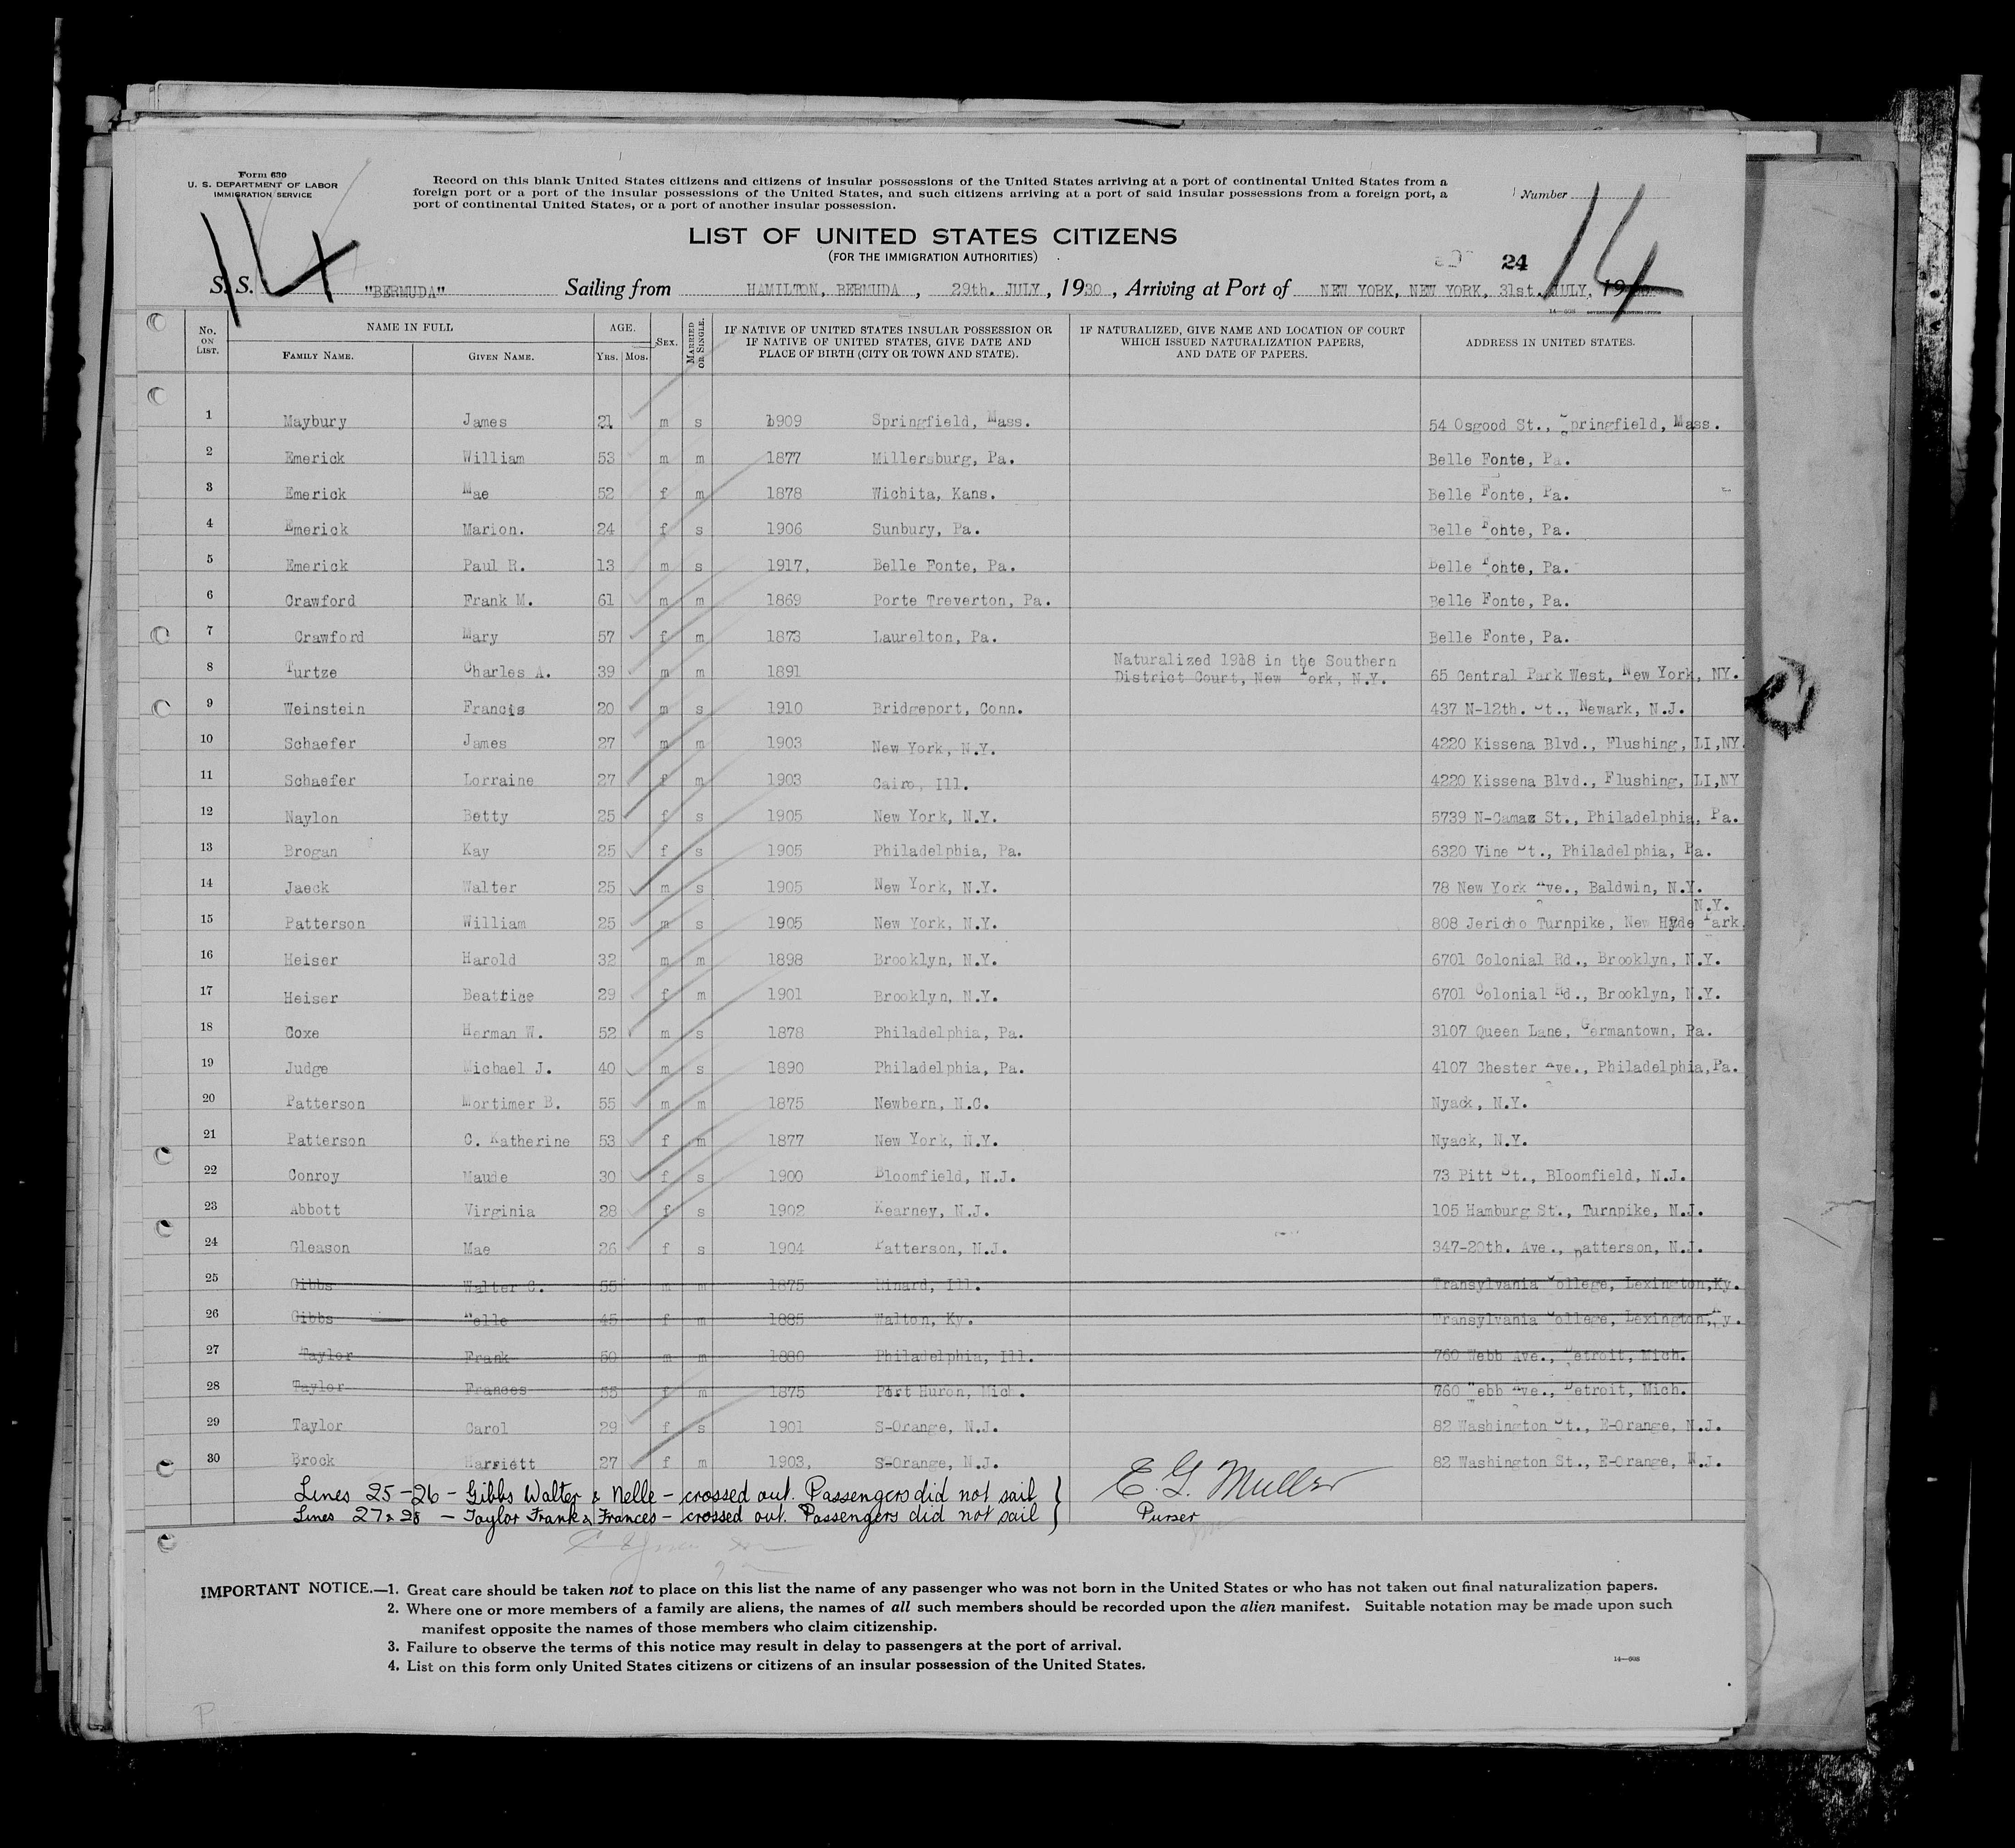 Form 630
U. S. DEPARTMENT OF LABOR
IMMIGRATION SERVICE
Record on this blank United States citizens and citizens of insular possessions of the United States arriving at a port of continental United States from a
foreign port or a port of the insular possessions of the United States, and such citizens arriving at a port of said insular possessions from a foreign port, a
port of continental United States, or a port of another insular possession.
Number
14
14
LIST OF UNITED STATES CITIZENS
(FOR THE IMMIGRATION AUTHORITIES)
24
S. S. "BERMUDA" Sailing from HAMILTON, BERMUDA, 29th. JULY, 1930, Arriving at Port of NEW YORK, NEW YORK, 31st. JULY, 19
No. ON LIST. NAME IN FULL FAMILY NAME. GIVEN NAME. AGE. YRS. MOS. SEX. MARRIED OR SINGLE. IF NATIVE OF UNITED STATES INSULAR POSSESSION OR IF NATIVE OF UNITED STATES, GIVE DATE AND PLACE OF BIRTH (CITY OR TOWN AND STATE). IF NATURALIZED, GIVE NAME AND LOCATION OF COURT WHICH ISSUED NATURALIZATION PAPERS, AND DATE OF PAPERS. ADDRESS IN UNITED STATES.
1 Maybury James 21 m s 1909 Springfield, Mass. 54 Osgood St., Springfield, Mass.
2 Emerick William 53 m m 1877 Millersburg, Pa. Belle Fonte, Pa.
3 Emerick Mae 52 f m 1878 Wichita, Kans. Belle Fonte, Pa.
4 Emerick Marion. 24 f s 1906 Sunbury, Pa. Belle Fonte, Pa.
5 Emerick Paul R. 13 m s 1917, Belle Fonte, Pa. Belle Fonte, Pa.
6 Crawford Frank M. 61 m m 1869 Porte Treverton, Pa. Belle Fonte, Pa.
7 Crawford Mary 57 f m 1873 Laurelton, Pa. Belle Fonte, Pa.
8 Turtze Charles A. 39 m m 1891 Naturalized 1918 in the Southern District Court, New York, N.Y. 65 Central Park West, New York, NY.
9 Weinstein Francis 20 m s 1910 Bridgeport, Conn. 437 N-12th. St., Newark, N.J.
10 Schaefer James 27 m m 1903 New York, N.Y. 4220 Kissena Blvd., Flushing, LI,NY.
11 Schaefer Lorraine 27 f m 1903 Cairo, Ill. 4220 Kissena Blvd., Flushing, LI,NY
12 Naylon Betty 25 f s 1905 New York, N.Y. 5739 N-Camac St., Philadelphia, Pa.
13 Brogan Kay 25 f s 1905 Philadelphia, Pa. 6320 Vine St., Philadelphia, Pa.
14 Jaeck Walter 25 m s 1905 New York, N.Y. 78 New York Ave., Baldwin, N.Y.
15 Patterson William 25 m s 1905 New York, N.Y. 808 Jericho Turnpike, New Hyde Park, N.Y.
16 Heiser Harold 32 m m 1898 Brooklyn, N.Y. 6701 Colonial Rd., Brooklyn, N.Y.
17 Heiser Beatrice 29 f m 1901 Brooklyn, N.Y. 6701 Colonial Rd., Brooklyn, N.Y.
18 Coxe Herman W. 52 m s 1878 Philadelphia, Pa. 3107 Queen Lane, Germantown, Pa.
19 Judge Michael J. 40 m s 1890 Philadelphia, Pa. 4107 Chester Ave., Philadelphia,Pa.
20 Patterson Mortimer B. 55 m m 1875 Newbern, N.C. Nyack, N.Y.
21 Patterson C. Katherine 53 f m 1877 New York, N.Y. Nyack, N.Y.
22 Conroy Maude 30 f s 1900 Bloomfield, N.J. 73 Pitt St., Bloomfield, N.J.
23 Abbott Virginia 28 f s 1902 Kearney, N.J. 105 Hamburg St., Turnpike, N.J.
24 Gleason Mae 26 f s 1904 Patterson, N.J. 347-20th. Ave., Patterson, N.J.
25 Gibbs Walter C. 55 m m 1875 Minard, Ill. Transylvania College, Lexington,Ky.
26 Gibbs Nelle 45 f m 1885 Walton, Ky. Transylvania College, Lexington,Ky.
27 Taylor Frank 50 m m 1880 Philadelphia, Ill. 760 Webb Ave., Detroit, Mich.
28 Taylor Frances 55 f m 1875 Port Huron, Mich. 760 Webb Ave., Detroit, Mich.
29 Taylor Carol 29 f s 1901 S-Orange, N.J. 82 Washington St., E-Orange, N.J.
30 Brock Harriett 27 f m 1903, S-Orange, N.J. 82 Washington St., E-Orange, N.J.
Lines 25-26 - Gibbs Walter & Nelle - crossed out. Passengers did not sail } E. G. Muller
Lines 27 & 28 - Taylor Frank & Frances - crossed out. Passengers did not sail } Purser
IMPORTANT NOTICE.—1. Great care should be taken not to place on this list the name of any passenger who was not born in the United States or who has not taken out final naturalization papers.
2. Where one or more members of a family are aliens, the names of all such members should be recorded upon the alien manifest. Suitable notation may be made upon such
manifest opposite the names of those members who claim citizenship.
3. Failure to observe the terms of this notice may result in delay to passengers at the port of arrival.
4. List on this form only United States citizens or citizens of an insular possession of the United States.
14—608